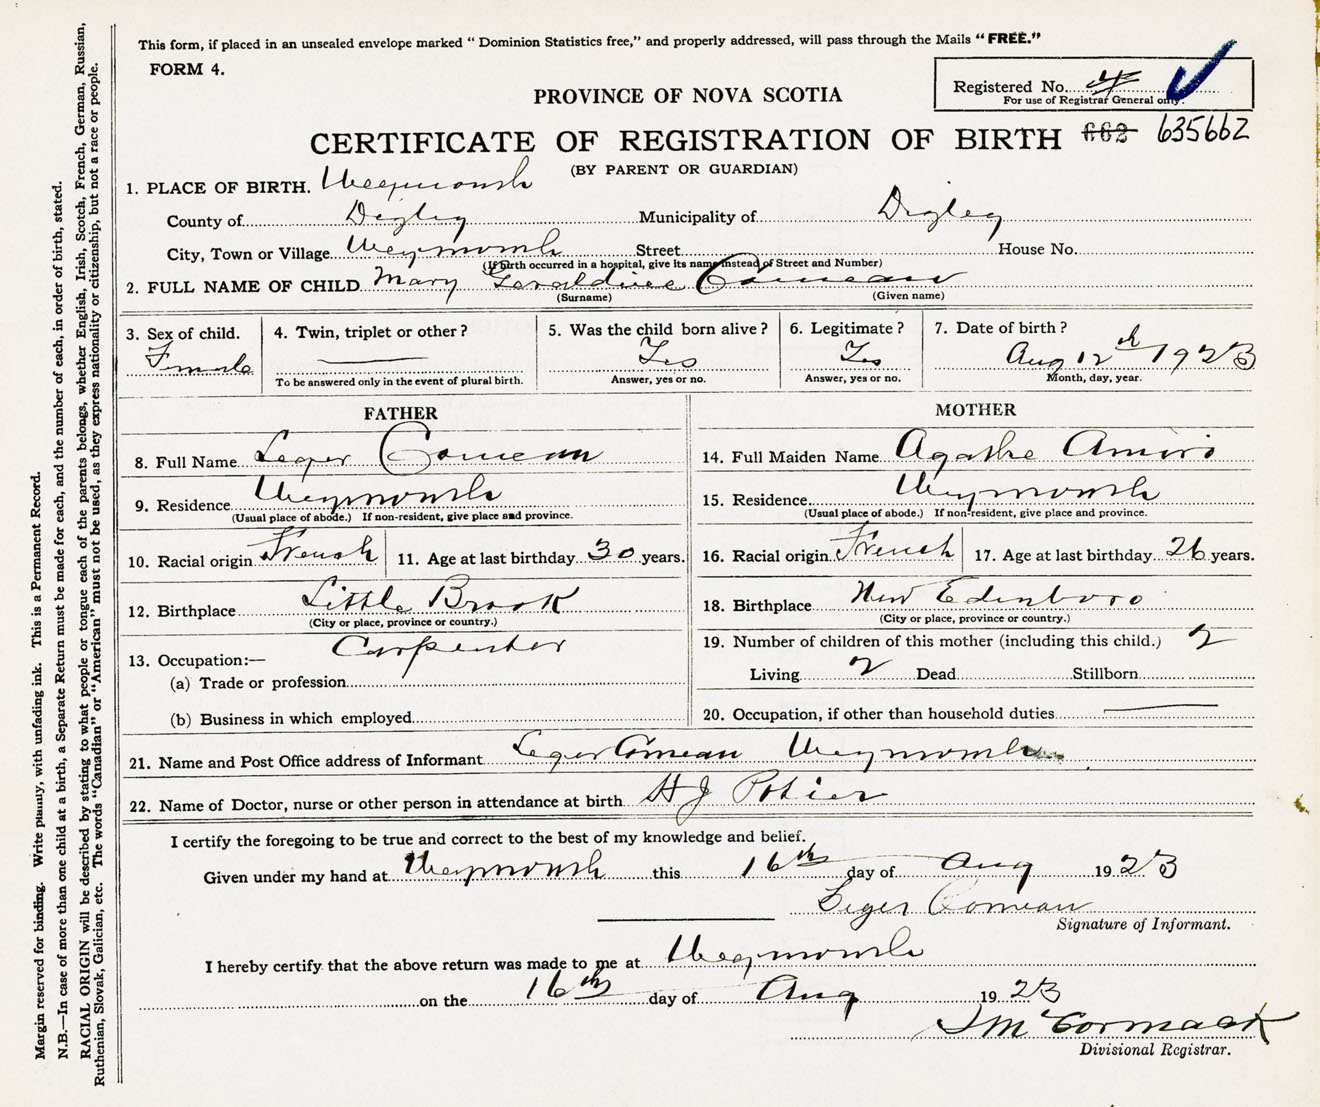 This form, if placed in an unsealed envelope marked “ Dominion Statistics free,” and properly addressed, will pass through the Mails “ FREE.”
FORM 4.
Registered No. 4
For use of Registrar General only.
PROVINCE OF NOVA SCOTIA
CERTIFICATE OF REGISTRATION OF BIRTH 662 635662
(BY PARENT OR GUARDIAN)
1. PLACE OF BIRTH. Weymouth
County of Digby Municipality of Digby
City, Town or Village Weymouth Street House No.
(If birth occurred in a hospital, give its name instead of Street and Number)
2. FULL NAME OF CHILD Mary Geraldine Comeau
(Surname) (Given name)
3. Sex of child. 4. Twin, triplet or other ? 5. Was the child born alive ? 6. Legitimate ? 7. Date of birth ?
Female Yes Yes Aug 12th 1923
To be answered only in the event of plural birth. Answer, yes or no. Answer, yes or no. Month, day, year.
FATHER MOTHER
8. Full Name Leger Comeau 14. Full Maiden Name Agathe Amiro
9. Residence Weymouth 15. Residence Weymouth
(Usual place of abode.) If non-resident, give place and province. (Usual place of abode.) If non-resident, give place and province.
10. Racial origin French 11. Age at last birthday 30 years. 16. Racial origin French 17. Age at last birthday 26 years.
12. Birthplace Little Brook 18. Birthplace New Edinboro
(City or place, province or country.) (City or place, province or country.)
13. Occupation:— Carpenter 19. Number of children of this mother (including this child.) 2
(a) Trade or profession Living 2 Dead Stillborn
(b) Business in which employed 20. Occupation, if other than household duties
21. Name and Post Office address of Informant Leger Comeau Weymouth
22. Name of Doctor, nurse or other person in attendance at birth H J Potier
I certify the foregoing to be true and correct to the best of my knowledge and belief.
Given under my hand at Weymouth this 16th day of Aug 1923
Leger Comeau
Signature of Informant.
I hereby certify that the above return was made to me at Weymouth
on the 16th day of Aug 1923
J McCormack
Divisional Registrar.
Margin reserved for binding. Write plainly, with unfading ink. This is a Permanent Record.
N.B.—In case of more than one child at a birth, a Separate Return must be made for each, and the number of each, in order of birth, stated.
RACIAL ORIGIN will be described by stating to what people or tongue each of the parents belongs, whether English, Irish, Scotch, French, German, Russian,
Ruthenian, Slovak, Galician, etc. The words “Canadian” or “American” must not be used, as they express nationality or citizenship, but not a race or people.